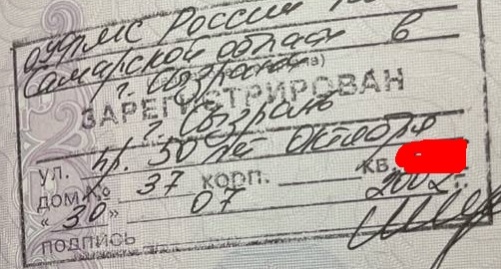 ОУФМС России по
Самарской области в
г. Сызрань
ЗАРЕГИСТРИРОВАН
г. Сызрань
ул. пр. 50 лет Октября
ДОМ № 37 КОРП. КВ.
«30» 07 2002 г.
ПОДПИСЬ